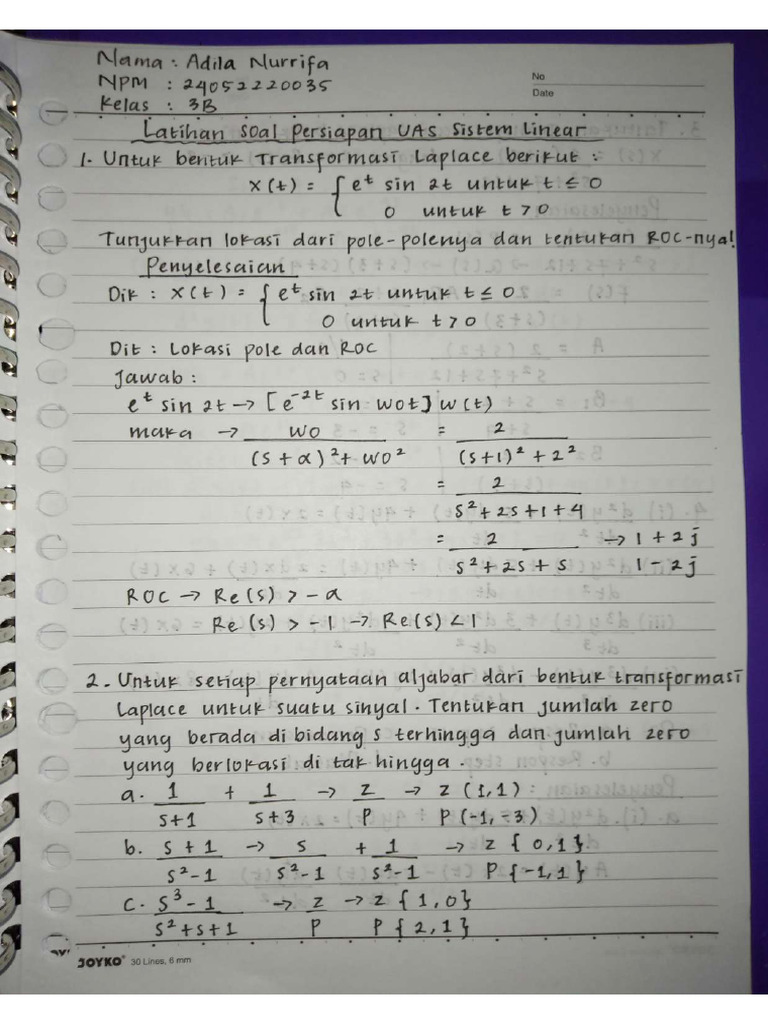 Nama : Adila Nurrifa
NPM : 24052220035
Kelas : 3B
No
Date
Latihan Soal Persiapan UAS Sistem Linear
1. Untuk bentuk Transformasi Laplace berikut :
x(t) = { e^t sin 2t untuk t ≤ 0
0 untuk t > 0
Tunjukkan lokasi dari pole-polenya dan tentukan ROC-nya!
Penyelesaian
Dik : x(t) = { e^t sin 2t untuk t ≤ 0
0 untuk t > 0
Dit : Lokasi pole dan ROC
Jawab :
e^t sin 2t → [e^-2t sin wot] W(t)
maka → wo / (s + α)² + wo² = 2 / (s+1)² + 2²
= 2 / s² + 2s + 1 + 4
= 2 / s² + 2s + s → 1 + 2j
1 - 2j
ROC → Re(s) > -a
Re(s) > -1 → Re(s) < 1
2. Untuk setiap pernyataan aljabar dari bentuk transformasi
Laplace untuk suatu sinyal. Tentukan jumlah zero
yang berada di bidang s terhingga dan jumlah zero
yang berlokasi di tak hingga.
a. 1 / s+1 + 1 / s+3 → z / P → z (1,1)
P (-1, -3)
b. s + 1 / s² - 1 → s / s² - 1 + 1 / s² - 1 → z { 0,1 }
P { -1, 1 }
c. s³ - 1 / s² + s + 1 → z / P → z { 1,0 }
P { 2,1 }
JOYKO 30 Lines, 6 mm